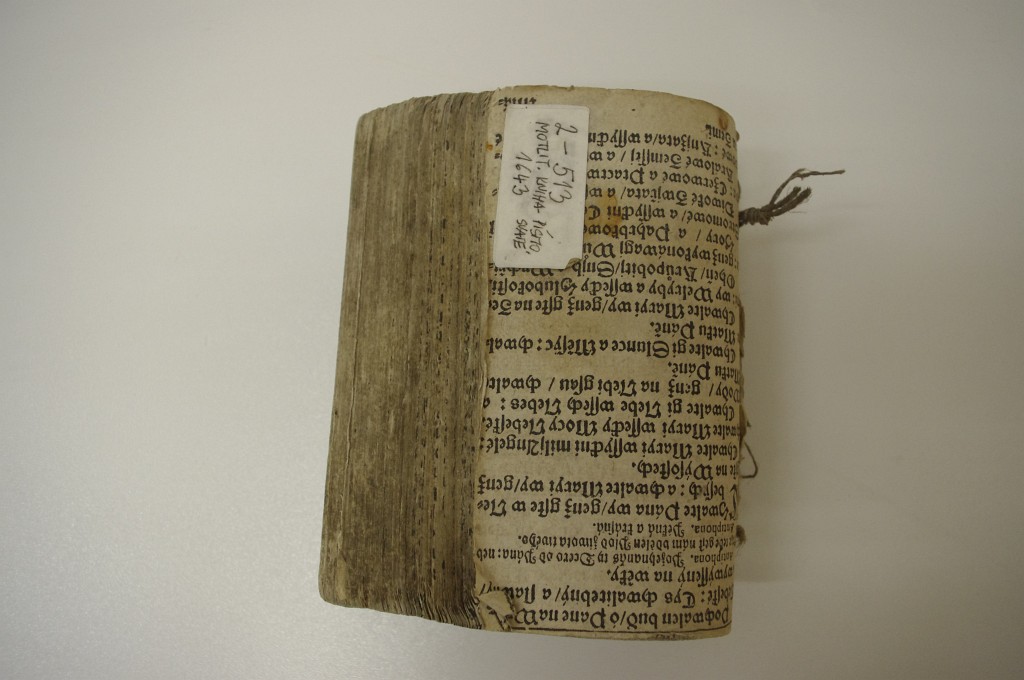 2-513
MOTLIT. KNIHA PÍSTO.
1643 SVATÉ.
Pochwalen buď / ó Pane na
Tys chwalitebný a
wywyssený na wěky.
Antiphona. Požehnanás ty Dcero od Pána: neb
tebe gest nám vdělen Plod života twého.
Antiphona. Pěkná a krásná.
Chwalte Pána wy / genž gste w Ne=
besých: a chwalte Maryi wy / genž
na Wýsostech.
Chwalte Maryi wssyckni milí Angelé:
Maryi wssecky Mocy Nebeské.
Chwalte gi Nebe wssech Nebes: a
Wody / genž na Nebi gsau / chwalte
Matku Páně.
Chwalte gi Slunce a Měsýc: chwal
Matku Páně.
Chwalte Maryi wy / genž gste na Ze
wy: Welryby a wssecky Hlubokosti.
Oheň / Krupobitj / Snjh
genž wykonáwagj
Hory / a Pahrbkowé
a wssyckni Ce
Diwoké Zwjřata / a w
Čerwowé a Ptactw
Kralowé Zemsstj / a w
Knjžata / a wssyckni
Zemi.